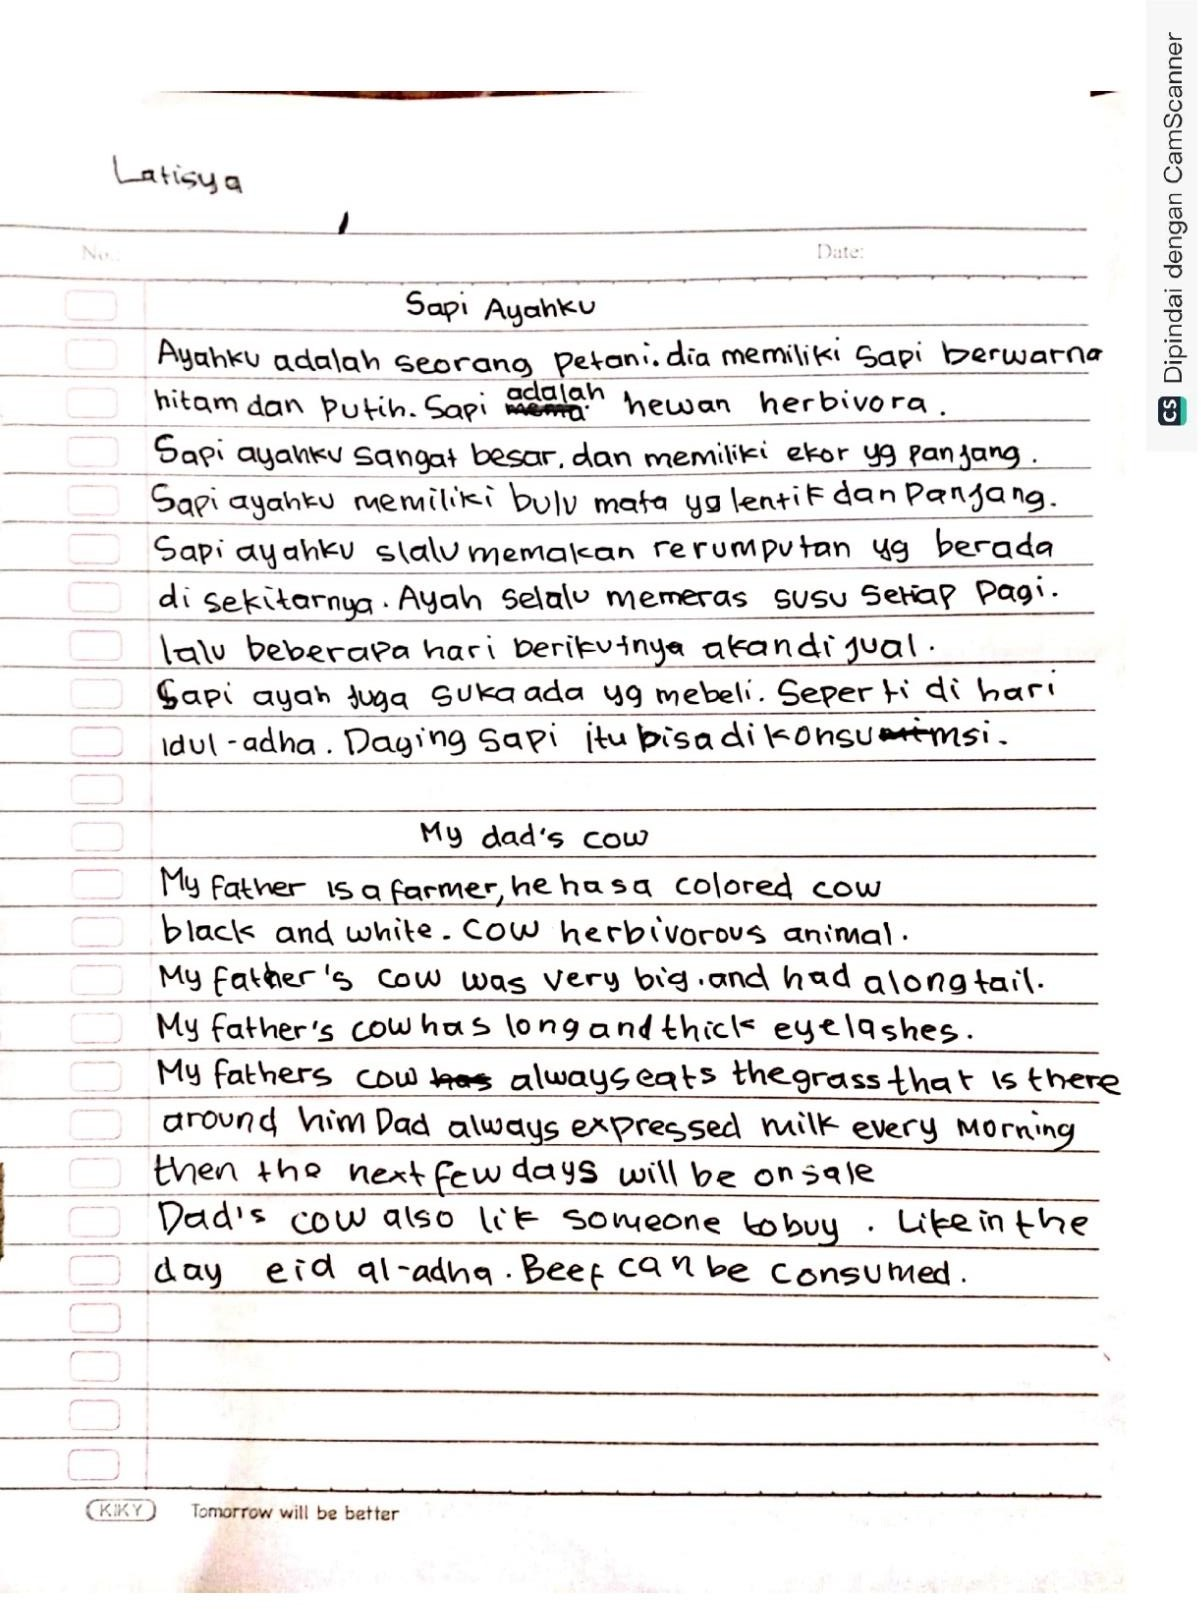 Latisya
No.: Date:
Sapi Ayahku
Ayahku adalah seorang petani. dia memiliki sapi berwarna
hitam dan putih. Sapi adalah hewan herbivora.
Sapi ayahku sangat besar. dan memiliki ekor yg panjang.
Sapi ayahku memiliki bulu mata yg lentik dan panjang.
Sapi ayahku slalu memakan rerumputan yg berada
di sekitarnya. Ayah selalu memeras susu setiap pagi.
lalu beberapa hari berikutnya akan di jual.
Sapi ayah juga suka ada yg mebeli. Seperti di hari
idul-adha. Daging sapi itu bisa di konsumsi.
My dad's cow
My father is a farmer, he has a colored cow
black and white. Cow herbivorous animal.
My father's cow was very big. and had a long tail.
My father's cow has long and thick eyelashes.
My fathers cow has always eats the grass that is there
around him Dad always expressed milk every morning
then the next few days will be on sale
Dad's cow also lik someone to buy. Like in the
day eid al-adha. Beef can be consumed.
KIKY Tomorrow will be better
CS Dipindai dengan CamScanner